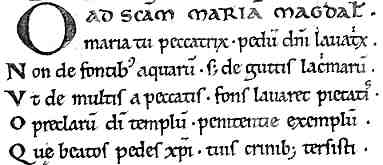 AD SCAM MARIA MAGDAL'.
O maria tu peccatrix · pedũ dñi lavat̃x
Non de fontib' aquarũ · s; de guttis lac̃marũ.
Vt de multis a peccatis · fons lavaret pietatis
O preclarũ di templũ · penitentie exemplũ ·
Que beatos pedes xp̃i · tuis crinib; tersisti ·